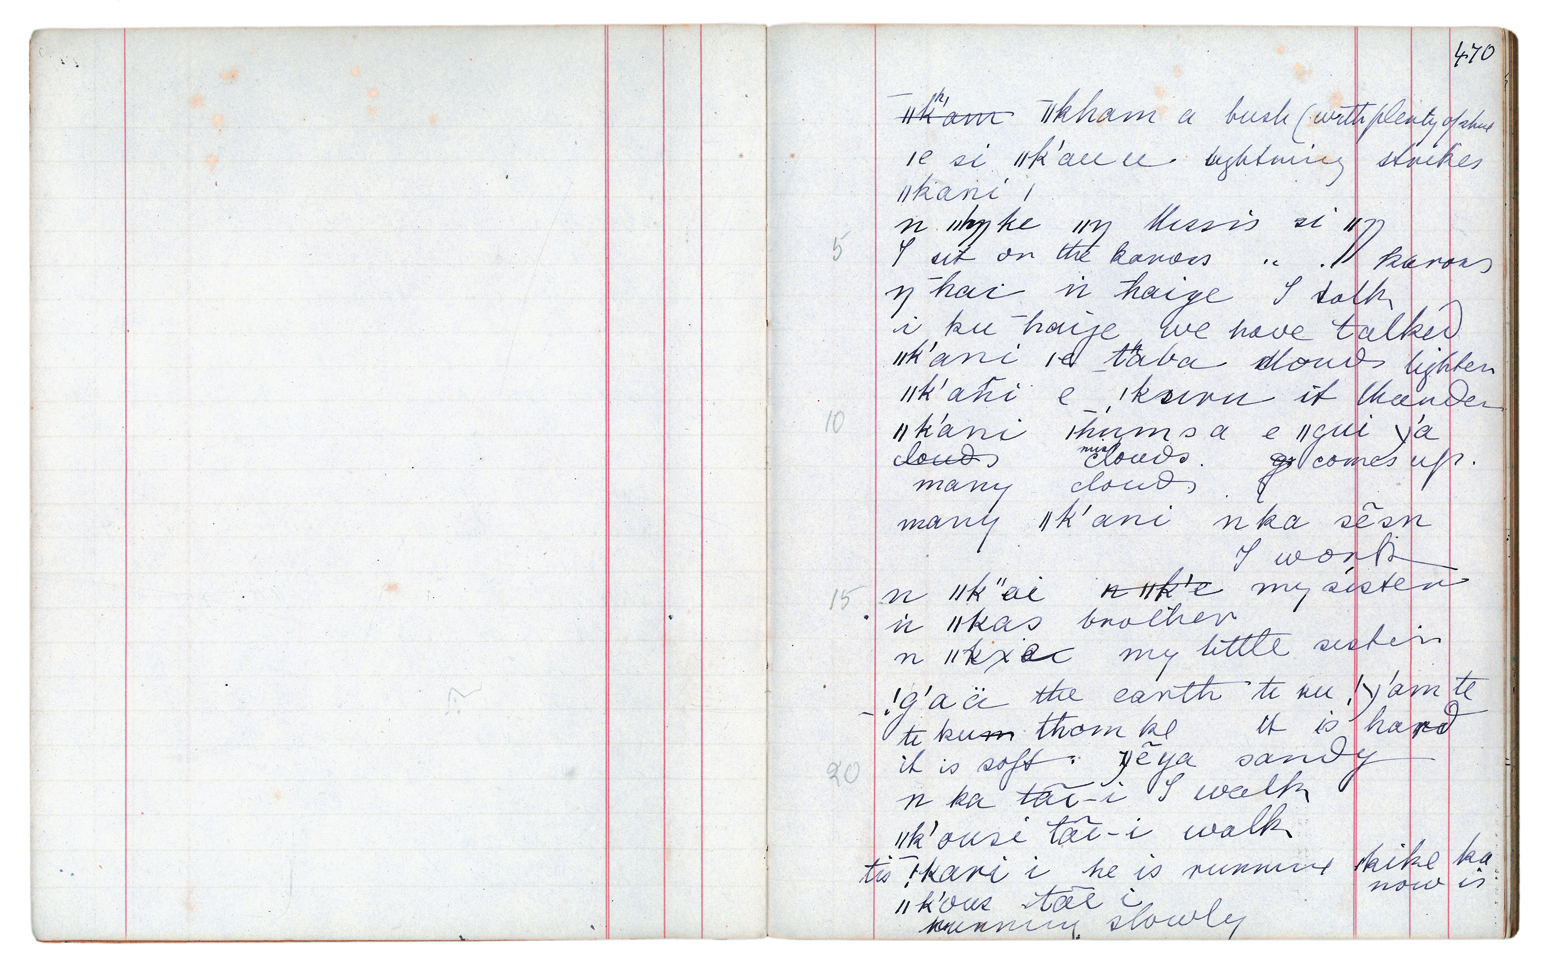 470
‖k'am ‖kham a bush (with plenty of
ǀe si ‖k'au u lightning strikes
‖kani !
n ‖hyke ‖ŋ Missis si ‖ŋ
5 I sit on the kaross " " karoos
ŋ hai n haige I talk
i ku haige we have talked
‖k'ani ǀe taba clouds lighten
‖k'ani e !kuru it thunder
10 ‖k'ani humsa e ‖gui
clouds clouds. comes up.
many clouds
many ‖k'ani n ka sẽsn
I work
15 n ‖k"ai n ‖k'e my sister
n ‖kas brother
n my little sister
!g'aä the earth te
te kum thom ke it is hard
20 it is soft : sandy
n ka tãi-i I walk
‖k'ousi tãi-i walk
!kari i he is running kike ka
now is
‖k'ous tãi i
running slowly